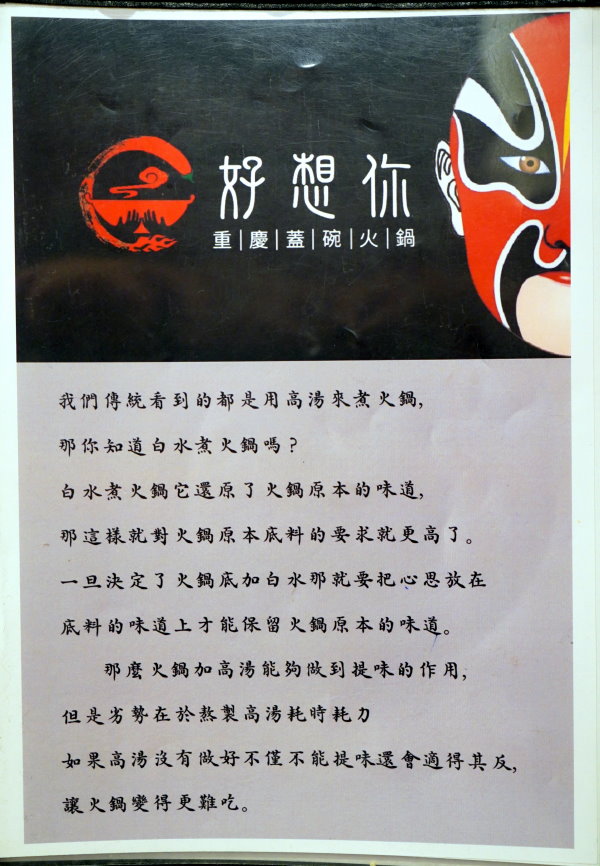 好想你
重|慶|蓋|碗|火|鍋
我們傳統看到的都是用高湯來煮火鍋,
那你知道白水煮火鍋嗎?
白水煮火鍋它還原了火鍋原本的味道,
那這樣就對火鍋原本底料的要求就更高了。
一旦決定了火鍋底加白水那就要把心思放在
底料的味道上才能保留火鍋原本的味道。
那麼火鍋加高湯能夠做到提味的作用,
但是劣勢在於熬製高湯耗時耗力
如果高湯沒有做好不僅不能提味還會適得其反,
讓火鍋變得更難吃。